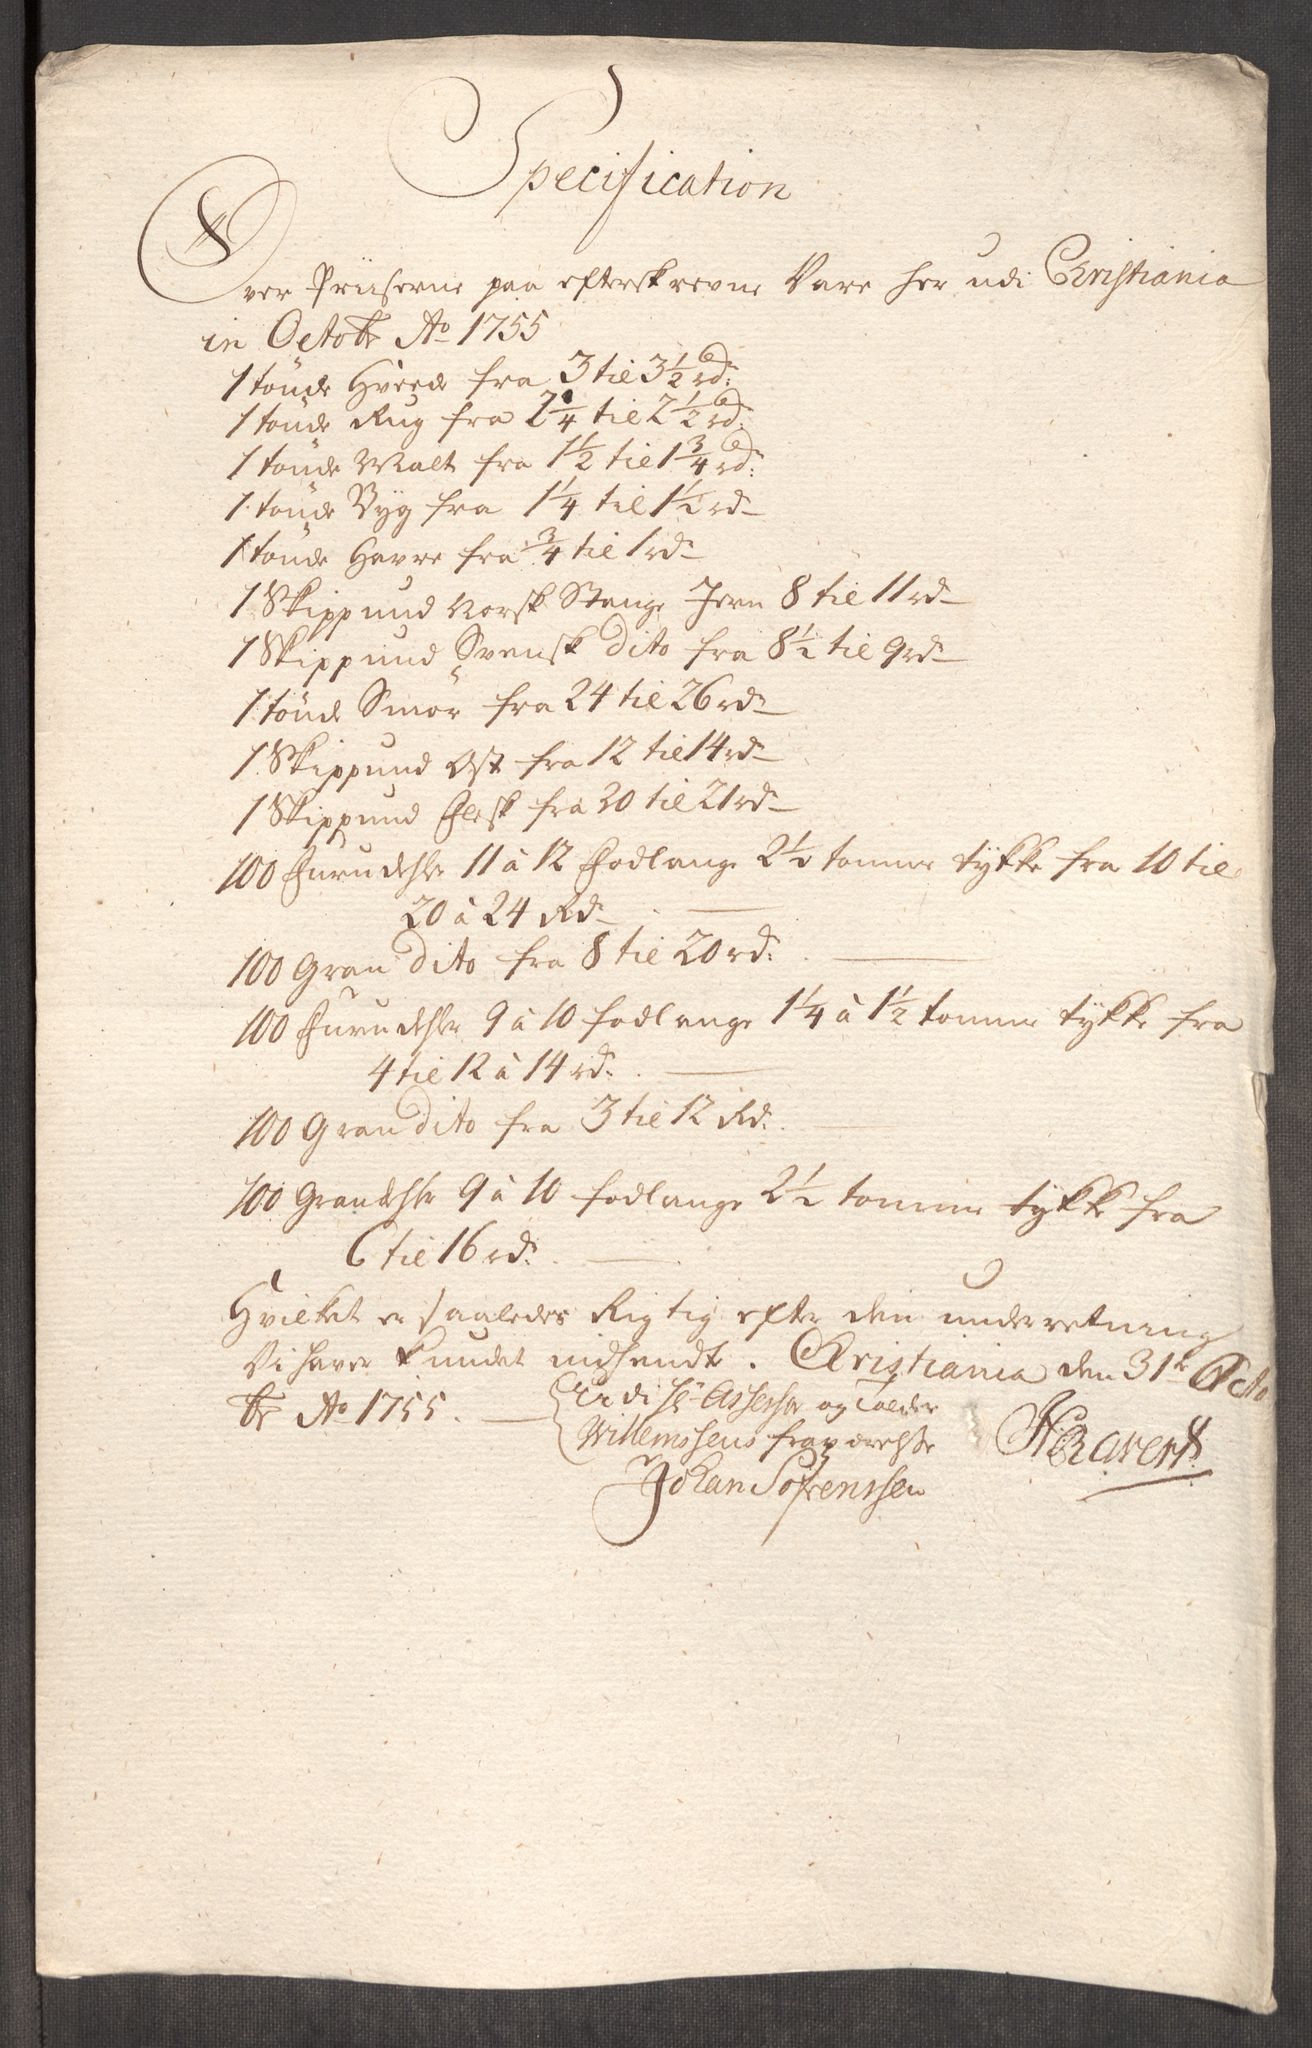 Specification
Over Priiserne paa efterskrevne Vare her udi Christiania
in Octobr Ao 1755
1 tönde Hvede fra 3 til 3½ rd:
1 tönde Rug fra 2¼ til 2½ rd:
1 tönde Malt fra 1½ til 1¾ rd:
1 tönde Byg fra 1¼ til 1½ rd
1 tönde Havre fra ¾ til 1 rd
1 Skippund Norsk Stange Jern 8 til 11 rd
1 Skippund Svensk dito fra 8½ til 9 rd
1 tönde Smör fra 24 til 26 rd
1 Skippund Ost fra 12 til 14 rd
1 Skippund Flesk fra 20 til 21 rd
100 Furudehler 11 à 12 Fodlange 2½ tomme tykke fra 10 til
20 à 24 Rd
100 Gran dito fra 8 til 20 rd:
100 Furudehler 9 à 10 fodlange 1¼ à 1½ tomme tykke fra
4 til 12 à 14 rd:
100 Gran dito fra 3 til 12 Rd:
100 Grandehler 9 à 10 fodlange 2½ tomme tykke fra
6 til 16 rd:
Hvilket er saaledes Rigtig efter den underretning
Vi haver kundet indhendte. Christiania den 31te Octo
br Ao 1755.
udi Hr Assessor og Tolder
Willemssens fraværelse
Johan Sörenssen